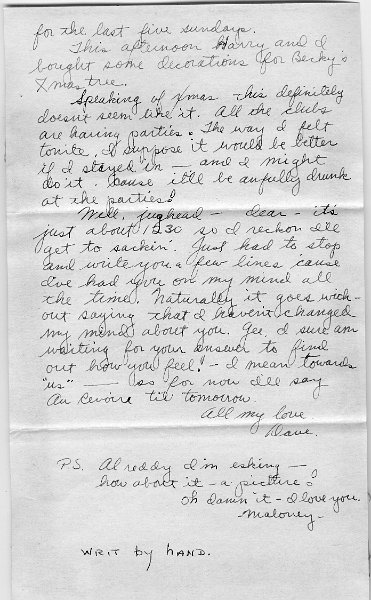 for the last five sundays.
This afternoon Harry and I
bought some decorations for Becky's
Xmas tree.
Speaking of Xmas this definitely
doesn't seem like it. All the clubs
are having parties. The way I felt
tonite, I suppose it would be better
if I stayed in — and I might
do it. Cause it'll be awfully drunk
at the parties!
Well, jughead - dear - it's
just about 1230 so I reckon I'll
get to sackin'. Just had to stop
and write you a few lines 'cause
I've had you on my mind all
the time. Naturally it goes with-
out saying that I haven't changed
my mind about you. Gee, I sure am
waiting for your answer to find
out how you feel! - I mean towards
"us" —— so for now I'll say
Au Revoire til tomorrow.
All my love
Dave.
PS. Al reddy I'm esking —
how about it - a picture?
Oh damn it - I love you.
- Maloney -
WRIT by HAND.